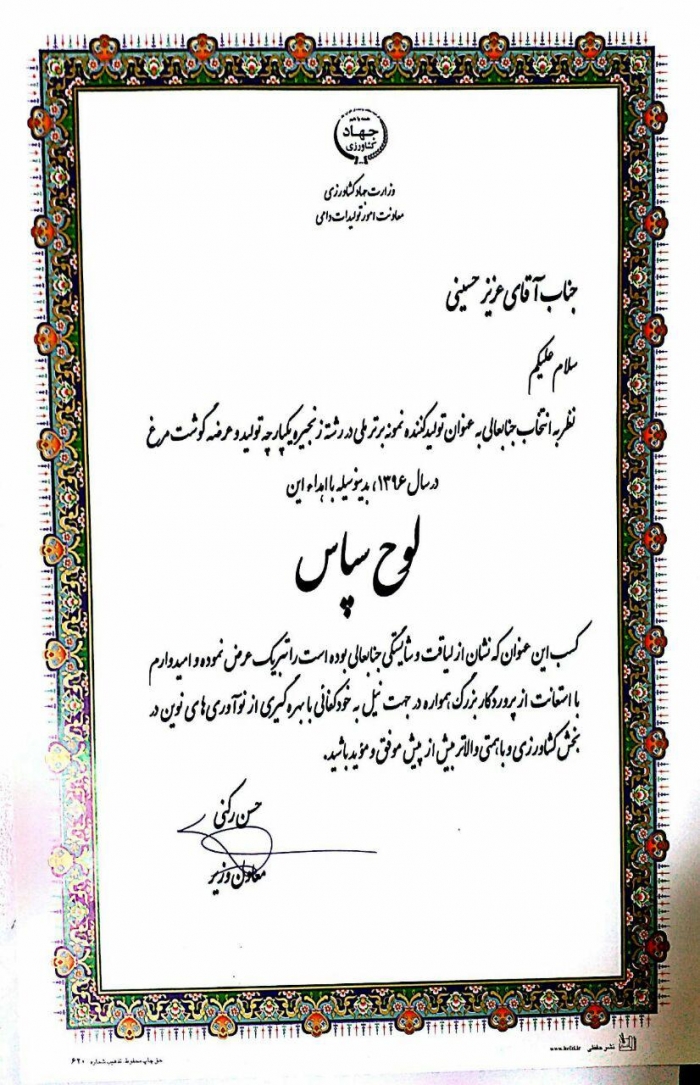 جهاد
کشاورزی
وزارت جهاد کشاورزی
معاونت امور تولیدات دامی
جناب آقای عزیز حسینی
سلام علیکم
نظر به انتخاب جنابعالی به عنوان تولیدکننده نمونه برتر ملی در رشته زنجیره یکپارچه تولید و عرضه گوشت مرغ
در سال ۱۳۹۶، بدینوسیله با اهداء این
لوح سپاس
کسب این عنوان که نشان از لیاقت و شایستگی جنابعالی بوده است را تبریک عرض نموده و امیدوارم
با استعانت از پروردگار بزرگ همواره در جهت نیل به خودکفائی با بهره گیری از نوآوری های نوین در
بخش کشاورزی و با همتی والاتر بیش از پیش موفق و مؤید باشید.
حسن رکنی
معاون وزیر
نشر حفظی www.hefzi.ir
حق چاپ محفوظ تذهیب شماره ۶۲۰